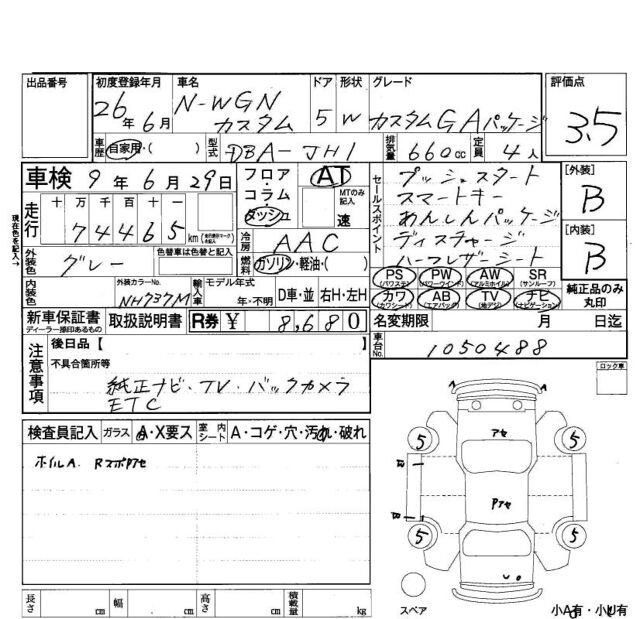 出品番号 初度登録年月 車名 ドア 形状 グレード 評価点
26年6月 N-WGN カスタム 5 W カスタムG Aパッケージ 3.5
車歴 自家用・( ) 型式 DBA-JH1 排気量 660cc 定員 4人
車検 9年6月29日 フロア・コラム・ダッシュ AT MTのみ記入 速
セールスポイント プッシュスタート
スマートキー
あんしんパッケージ
ディスチャージ
ハーフレザーシート
[外装] B
[内装] B
現在色を記入→
走行 十万千百十 74465km
冷房 AAC
外装色 グレー 色替車は色替と記入 燃料 ガソリン・軽油・( )
PS (パワステ) PW (パワーウインド) AW (アルミホイル) SR (サンルーフ)
カワ (カワシート) AB (エアバック) TV (地デジ) ナビ (ナビゲーション)
純正品のみ丸印
内装色 外装カラーNo. NH737M 輸入車 モデル年式 年・不明 D車・並 右H・左H
新車保証書 ディーラー捺印あるもの 取扱説明書 R券 ¥ 8,680 名変期限 月 日迄
注意事項 後日品【 】 車台No. 1050488
不具合箇所等
純正ナビ・TV・バックカメラ
ETC
ロック車
検査員記入 ガラス A・X要ス 室内シート A・コゲ・穴・汚れ・破れ
ホイルA Rスポアセ
A A
アセ
5 5
B
Pアセ
B
5 5
スペア 小A有・小U有
長さ cm 幅 cm 高さ cm 積載量 kg